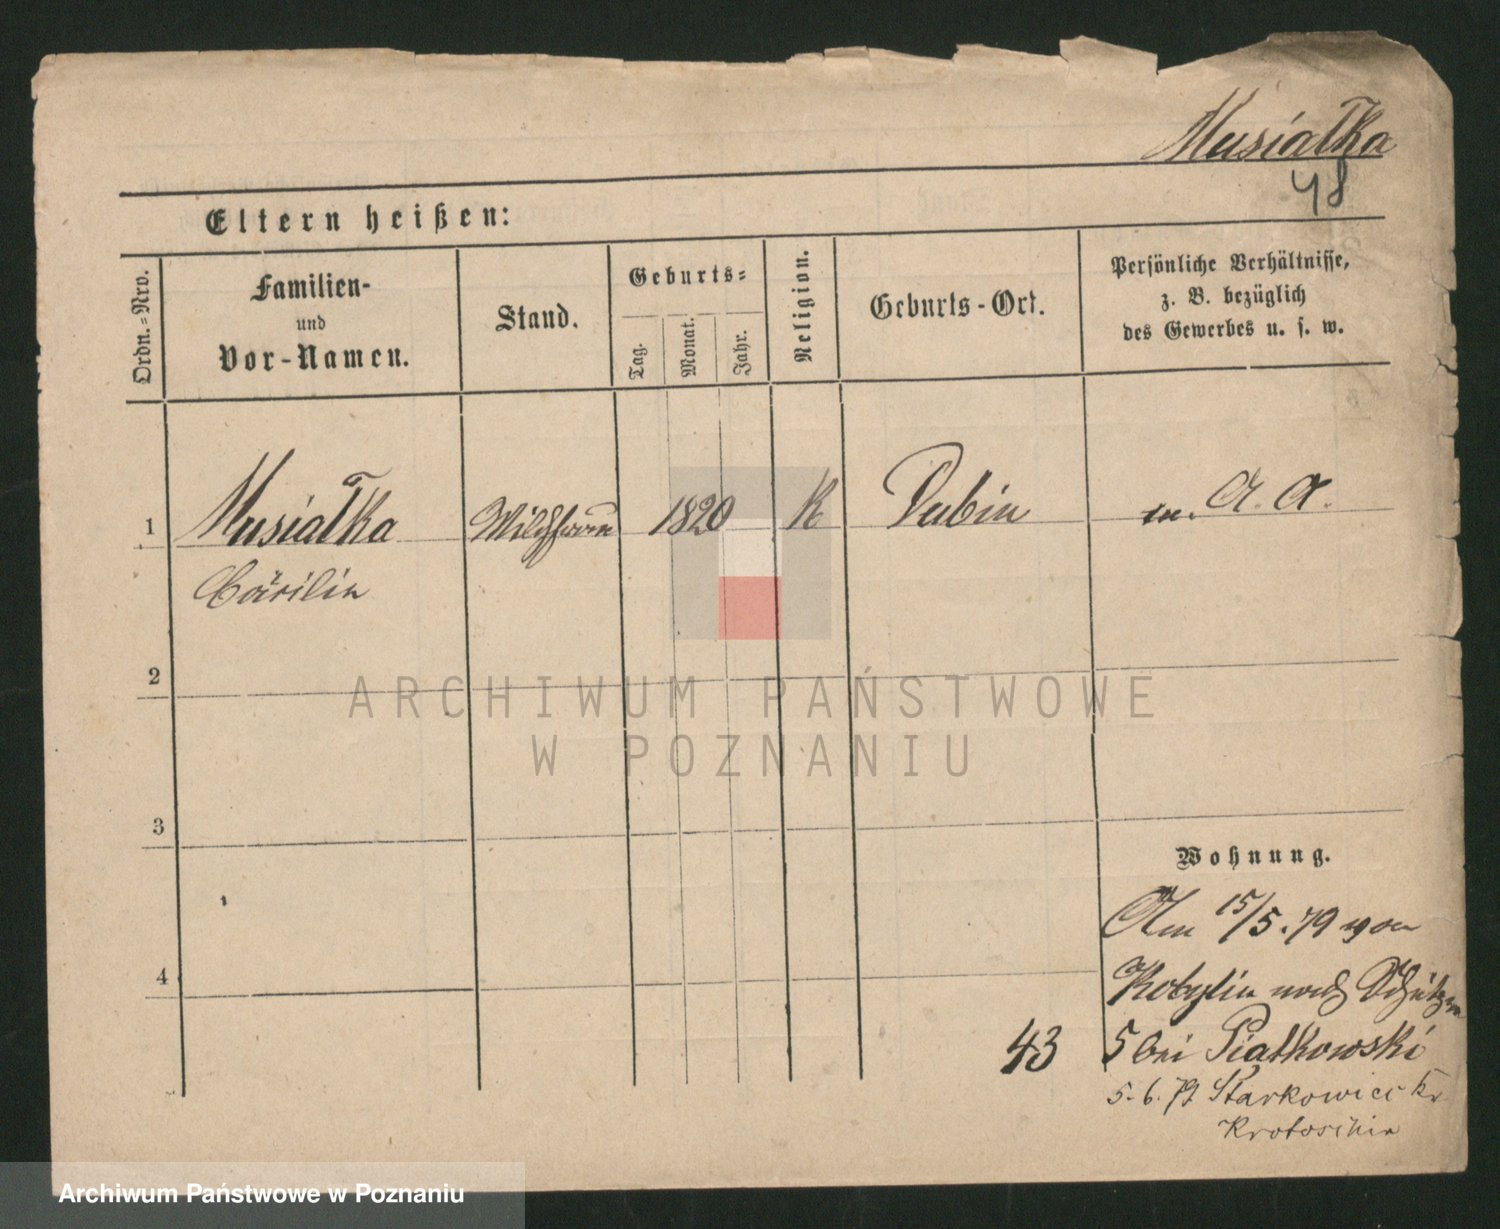 Musiałka
48
Eltern heißen:
Ordn.-Nro.
Familien-
und
Vor-Namen.
Stand.
Geburts-
Tag.
Monat.
Jahr.
Religion.
Geburts-Ort.
Persönliche Verhältnisse,
z. B. bezüglich
des Gewerbes u. s. w.
1 Musiałka 1820 K Dubin m. A. A.
Cäcilia
2
ARCHIWUM PAŃSTWOWE
W POZNANIU
3
Wohnung.
Am 15/5.79 von
4
Kobylin nach Schützen
43 5 bei Piatkowski
5.6.79 Starkowiec Kr
Krotoschin
Archiwum Państwowe w Poznaniu